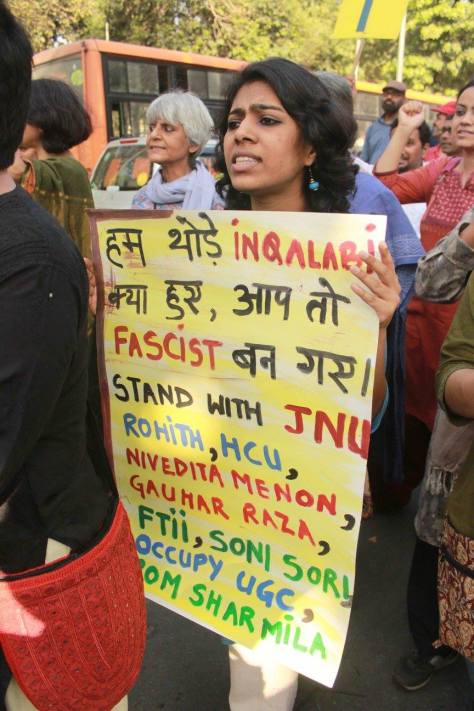 हम थोड़े INQALABI
क्या हुए, आप तो
FASCIST बन गए।
STAND WITH JNU
ROHITH, HCU,
NIVEDITA MENON,
GAUHAR RAZA,
FTII, SONI SORI,
OCCUPY UGC,
ROM SHARMILA